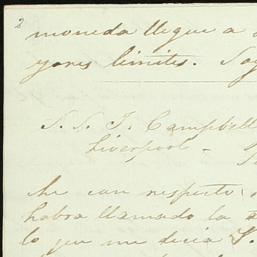 2
moneda llegue a
yores limites. Soy
S. S. J. Campbell
Liverpool -
he con respecto
habra llamado la
lo que me decia S.